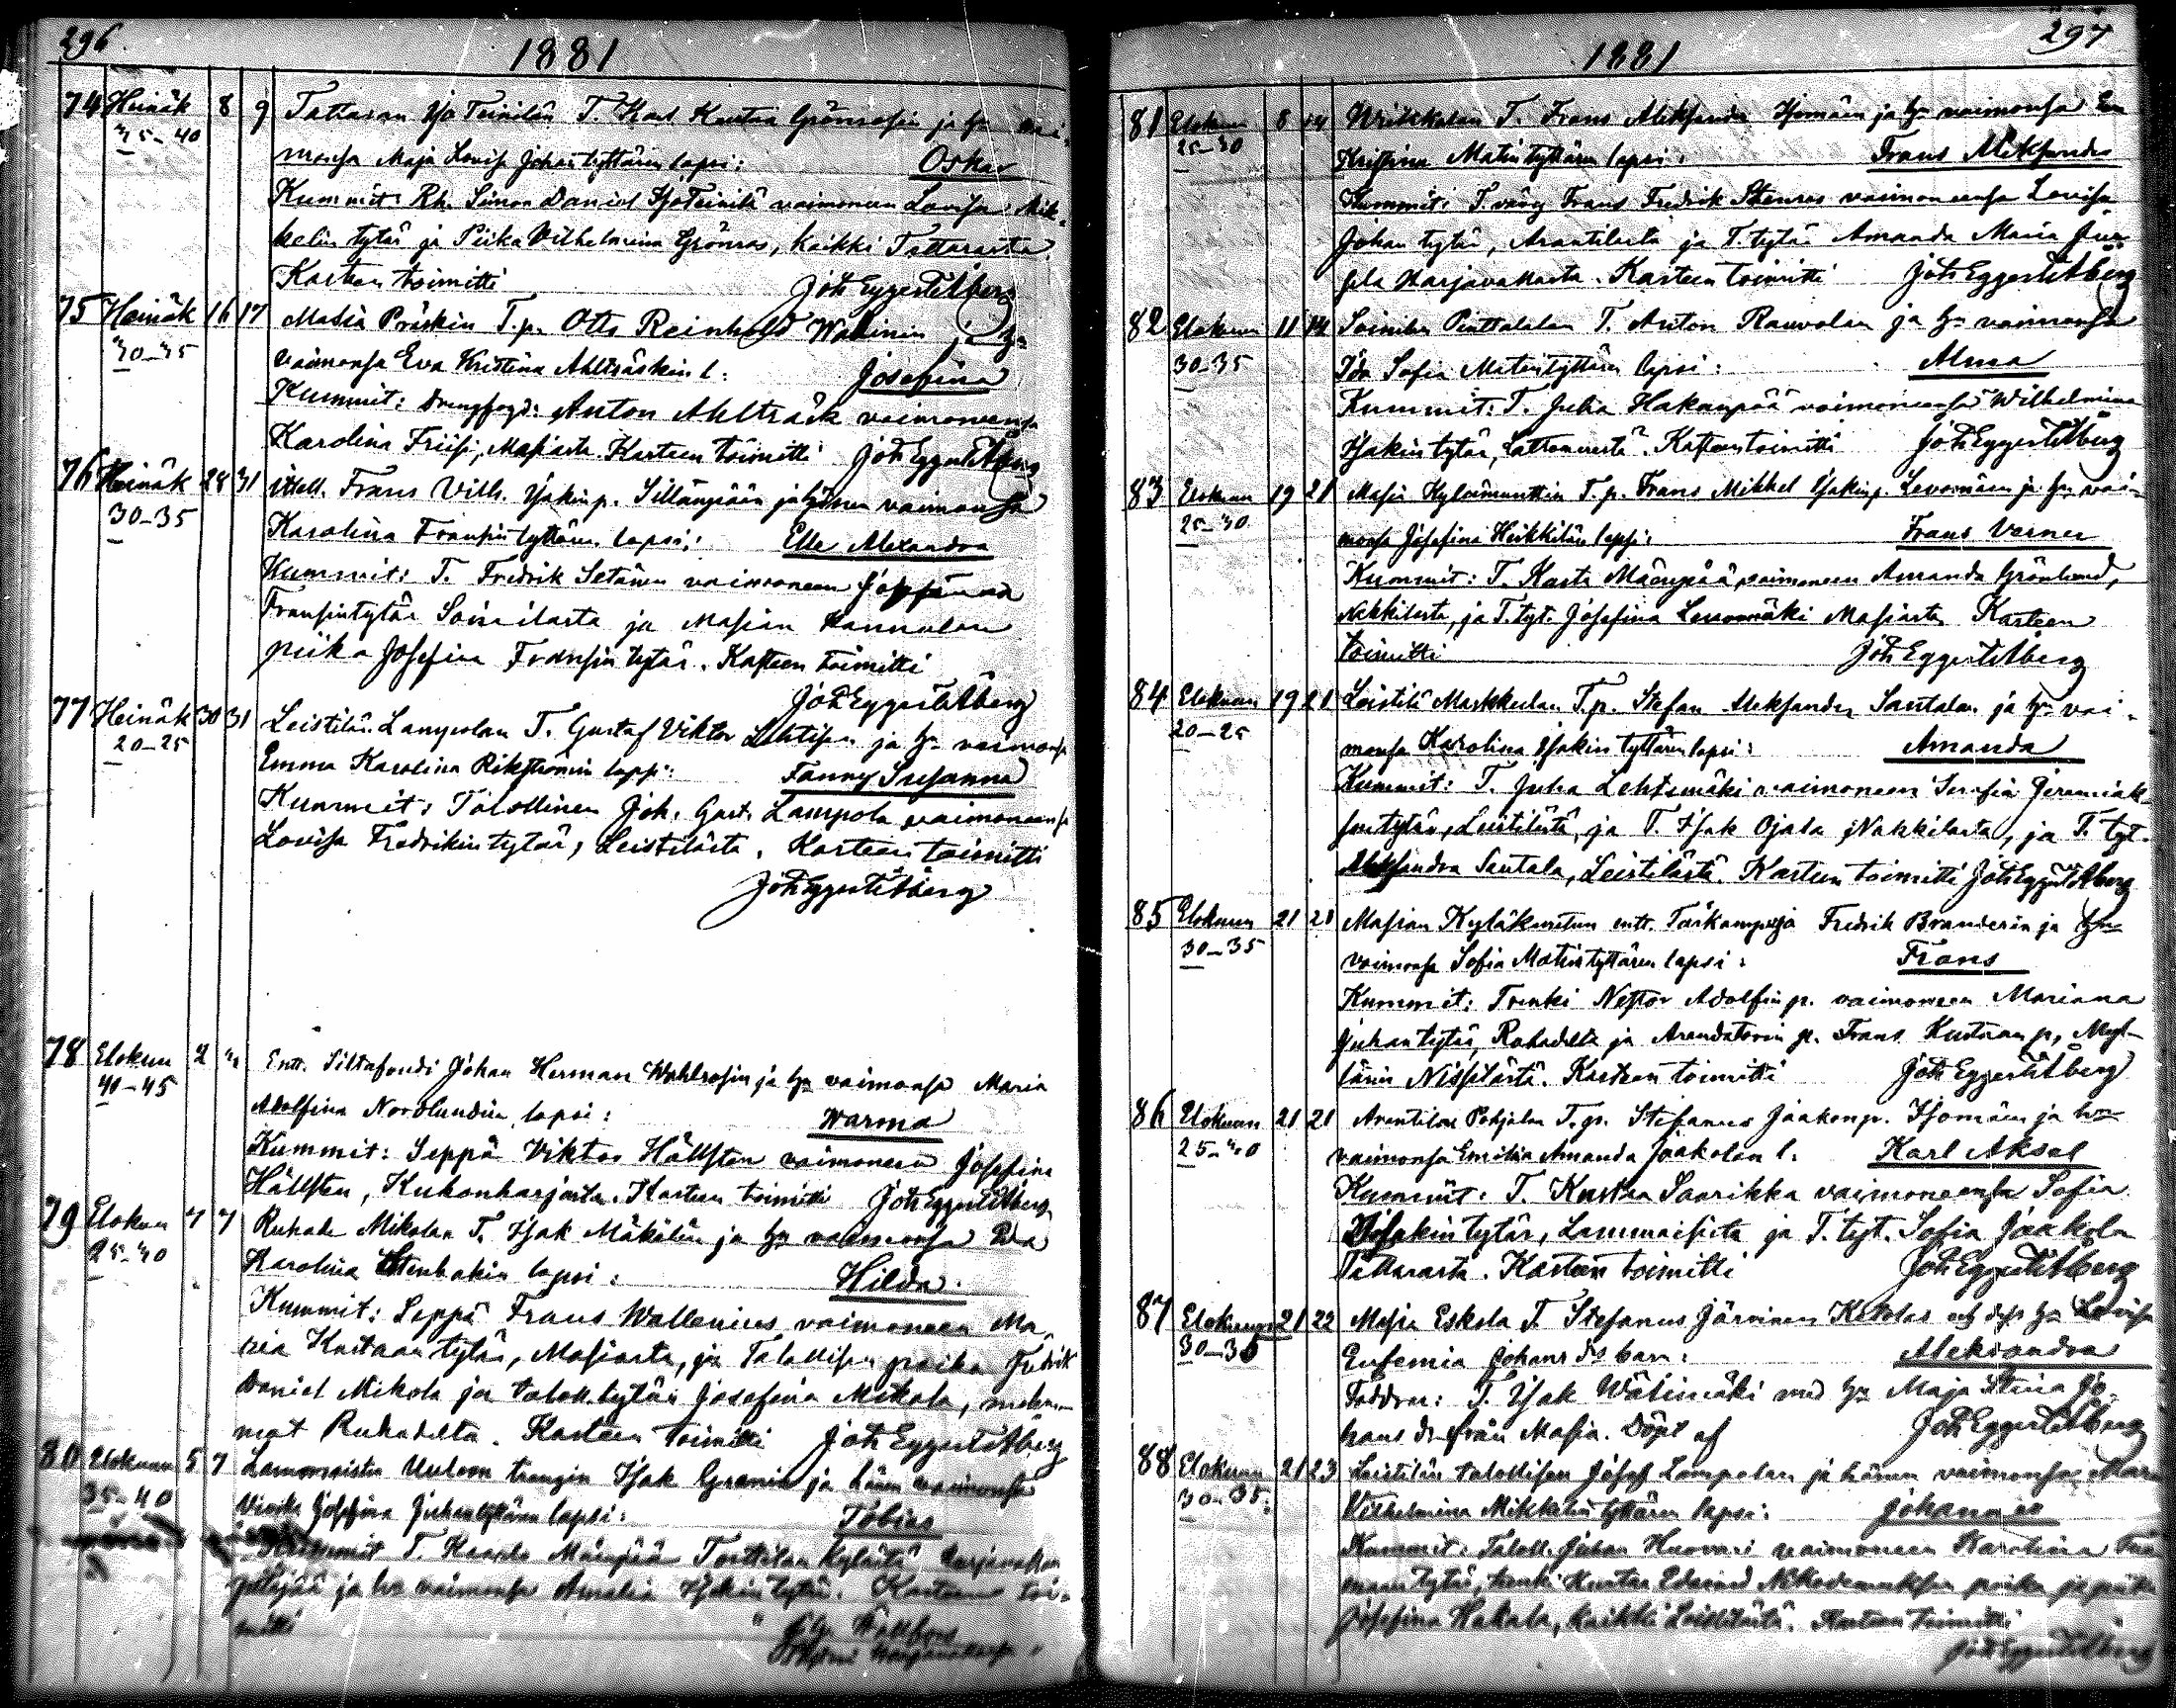 296
1881
74 Heinäk 8 9 Tattaran Iso Teinilän T. Karl Kustaa Grönrosin ja hn vai-
25-30 monsa Maja Lovisa Johantyttären lapsi: Oskar
Kummit: Rh. Simon Daniel IsoTeinilä vaimoneen Lovisa Mik-
kelin tytär ja Piika Vilhelmina Grönros, kaikki Tattarasta.
Kasteen toimitti Joh Eggert Åberg
75 Heinäk 16 17 Masia Präskin T.p. Otto Reinhold Wallinen ja hn
30-35 vaimonsa Eva Kristina Ahlträskin l: Josefina
Kummit: Drengfogd: Anton Ahlträsk vaimoneensa
Karolina Friisi, Masiasta. Kasteen toimitti Joh Eggert Åberg
76 Heinäk 28 31 itsell. Frans Vilh. Isakinp. Sillänpään ja hänen vaimonsa
30-35 Karolina Fransintyttären lapsi: Elle Alexandra
Kummit: T. Fredrik Setänen vaimoneen
Fransintytär Soinilasta ja Masian Hannulan
piika Josefina Fransin tytär. Kasteen toimitti
Joh Eggert Åberg
77 Heinäk 30 31 Leistilän Lampolan T. Gustaf Viktor Lehtisen ja hn vaimonsa
20-25 Emma Karolina Rikströmin lapsi: Fanny Susanna
Kummit: Talollinen Joh. Gust. Lampola vaimoneensa
Lovisa Fredrikintytär, Leistilästä. Kasteen toimitti
Joh Eggert Åberg
78 Elokuu 2 Entt. Siltafouti Johan Herman Wahlrosin ja hn vaimonsa Maria
40-45 Adolfina Nordlundin lapsi: Warma
Kummit: Seppä Viktor Hällsten vaimoneen Josefina
Hällsten, Kukonharjasta. Kasteen toimitti Joh Eggert Åberg
79 Elokuu 7 7 Ruhade Mikolan T. Isak Mäkilän ja hn vaimonsa Eva
25-30 Karolina Stenbakin lapsi: Hilda.
Kummit: Seppä Frans Wallenius vaimoneen Ma-
ria Kustaan tytär, Masiasta, ja Talollisen poika Fredrik
Daniel Mikola ja taloll. tytär Josefina Mikola, molem-
mat Ruhadelta. Kasteen toimitti Joh Eggert Åberg
80 Elokuun 5 7 Lammaisten Uuteen trengin Isak Granin ja hänen vaimonsa
35-40 Josefina Juhantyttären lapsi: Tobias
Kummit T. Kaarle Mäenpää Torttilan kylästä Harjavallan
pitäjää ja hn vaimonsa Amalia Isakin tytär. Kasteen toi-
mitti
297
1881
81 Elokuu 8 14 T. Frans Aleksander Isomäen ja hn vaimonsa
25-30 Kristina Matintyttären lapsi: Frans Aleksander
Kummit: T. vävy Frans Fredrik Stenros vaimoneensa Lovisa
Johan tytär, Arantilasta ja T. tytär Amanda Maria
Harjavallasta. Kasteen toimitti Joh Eggert Åberg
82 Elokuun 11 14 Soinilan Penttalan T. Anton Rauvolan ja hn vaimonsa
30-35 Ida Sofia Matintyttären lapsi: Alma
Kummit: T. Juha Hakanpää vaimoneensa Wilhelmina
Isakin tytär, Lattomerestä. Kasteen toimitti Joh Eggert Åberg
83 Elokuun 19 21 Masia T.p. Frans Mikkel Isakinp. Levomäen ja hn vai-
25-30 monsa Josefina Heikkilän lapsi: Frans Verner
Kummit: T. Kaarle Mäenpää, vaimoneen Amanda Grönlund,
Nakkilasta, ja T. tyt. Josefina Levomäki Masiasta Kasteen
toimitti Joh Eggert Åberg
84 Elokuun 19 21 Leistilä Markkulan T.p. Stefan Aleksander Santalan ja hn vai-
20-25 monsa Karolina Isakin tyttären lapsi: Amanda
Kummit: T. Juha Lehtimäki vaimoneen Serafia Jeremiak-
sentytär, Leistilästä, ja T. Isak Ojala Nakkilasta, ja T. tyt.
Aleksandra Santala, Leistilästä. Kasteen toimitti Joh Eggert Åberg
85 Elokuun 21 21 Masian Kyläkunnan entt. Torkanpitäjä Fredrik Branderin ja hn
30-35 vaimonsa Sofia Matintyttären lapsi: Frans
Kummit: Trenki Nestor Adolfinp. vaimoneen Mariana
Juhantytär, Ruhadelta ja Arendatorin p. Frans Kustaan p, Myl-
lärin Nissilästä. Kasteen toimitti Joh Eggert Åberg
86 Elokuun 21 21 Arantilan Pohjalan T.p. Stefanus Jaakonp. Isomäen ja hn
25-30 vaimonsa Emilia Amanda Jaakolan l: Karl Aksel
Kummit: T. Kustaa Saarikka vaimoneensa Sofia
Isakin tytär, Lammaisista ja T. tyt. Sofia Jaakola
Tattarasta. Kasteen toimitti Joh Eggert Åberg
87 Elokuun 21 22 Masia Eskola T. Stefanus Järvinen och dess h Lovisa
30-35 Eufemia Johans dr barn: Aleksandra
Faddrar: T. Isak Wälimäki med h Maja Stina Jo-
hans dr från Masia. Döpt af Joh Eggert Åberg
88 Elokuun 21 23 Leistilän talollisen Josef Lampolan ja hänen vaimonsa Maria
30-35 Vilhelmina Mikkelin tyttären lapsi: Johannes
Kummit: Taloll. Juhan Huovari vaimoneen Karolina
tytär, trenki Kustaa Edvard Nikodemuksen poika ja piika
Josefina Hakala, kaikki Leistilästä. Kasteen toimitti
Joh Eggert Åberg